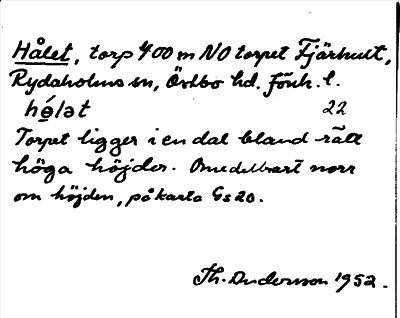 Hålet, torp 400 m NO torpet Fjärhult,
Rydaholms sn, Östbo hd. Jönk. l.
hó̱lət 22
Torpet ligger i en dal bland rätt
höga höjder. Omedelbart norr
om höjden, på karta Gs 20.
Th. Anderson 1952.